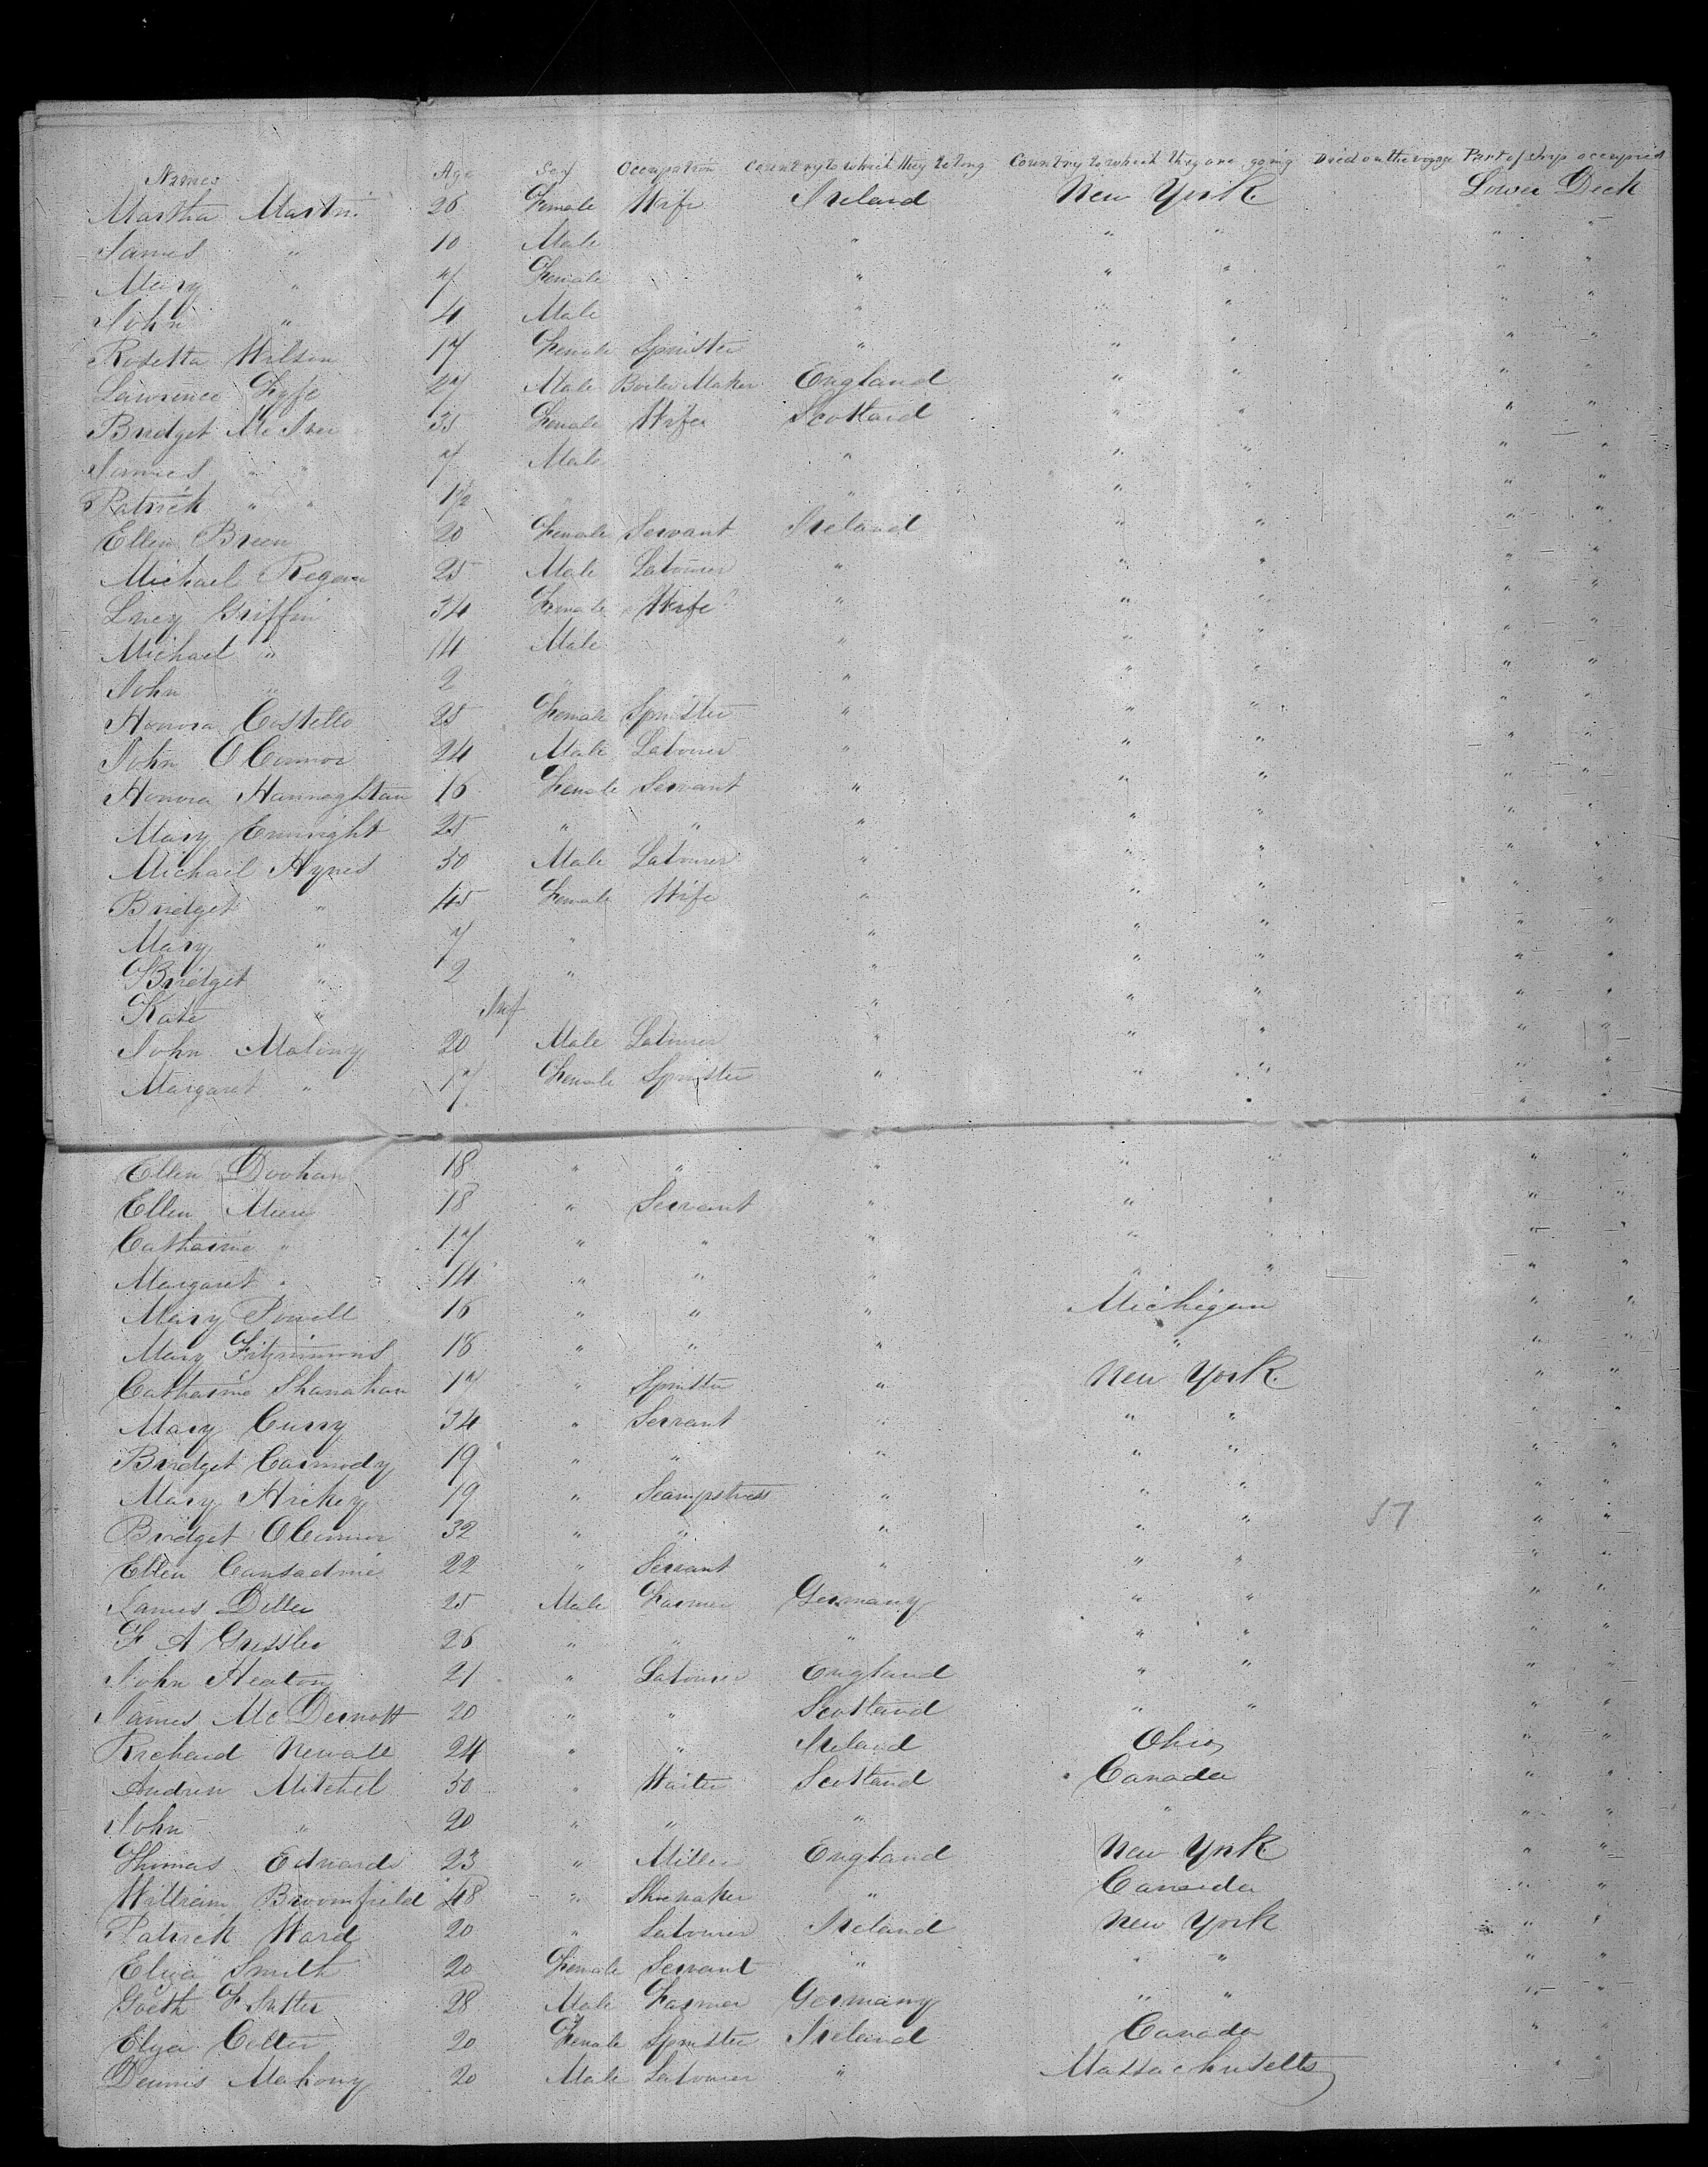 Names Age Sex Occupation Country to which they belong Country to which they are going Died on the voyage Part of ship occupied
Martha Martin 26 Female Wife Ireland New York Lower Deck
James " 10 Male " " " " "
Mary " 7 Female " " " " "
John " 4 Male " " " " "
Rosetta Wilson 17 Female Spinster " " " " "
Lawrence Fyfe 27 Male Boiler Maker England " " " "
Bridget Mc Iver 35 Female Wife Scotland " " " "
James " " 7 Male " " " " "
Patrick " " 1½ " " " " " "
Ellen Breen 20 Female Servant Ireland " " " "
Michael Regan 25 Male Labourer " " " " "
Lucy Griffin 34 Female Wife " " " " "
Michael " 14 Male " " " " "
John " 2 " " " " " "
Honora Costello 25 Female Spinster " " " " "
John O Connor 24 Male Labourer " " " " "
Honora Hannaghtan 16 Female Servant " " " " "
Mary Enright 25 " " " " " " "
Michael Hynes 50 Male Labourer " " " " "
Bridget " 45 Female Wife " " " " "
Mary " 7 " " " " " "
Bridget " 2 " " " " " "
Kate " Inf " " " " "
John Malony 20 Male Labourer " " " " "
Margaret " 17 Female Spinster " " " " "
Ellen Doohan 18 " " " " " " "
Ellen 18 " Servant " " " " "
Catharine " 17 " " " " " " "
Margaret " 14 " " " " " " "
Mary Powell 16 " " " Michigan " "
Mary Fitzsimmons 18 " " " " " "
Catharine Shanahan 17 " Spinster " New York " "
Mary Curry 34 " Servant " " " " "
Bridget Carmody 19 " " " " " " "
Mary Hickey 19 " Seampstress " " " " "
Bridget O Connor 32 " " " " " 57 " "
Ellen Cansadine 22 " Servant " " " " "
James Diller 25 Male Farmer Germany " " " "
F A Gressler 26 " " " " " " "
John Heaton 21 " Labourer England " " " "
James Mc Dermott 20 " " Scotland " " " "
Richard Newall 24 " " Ireland Ohio " "
Andrew Mitchel 50 " Waiter Scotland Canada " "
John " 20 " " " " " "
Thomas Edwards 23 " Miller England New York " "
William Broomfield 48 " Shoemaker " Canada " "
Patrick Ward 20 " Labourer Ireland New York " "
Eliza Smith 20 Female Servant " " " " "
F Sutter 28 Male Farmer Germany " " " "
Eliza 20 Female Spinster Ireland Canada " "
Dennis Mahony 20 Male Labourer " Massachusetts "